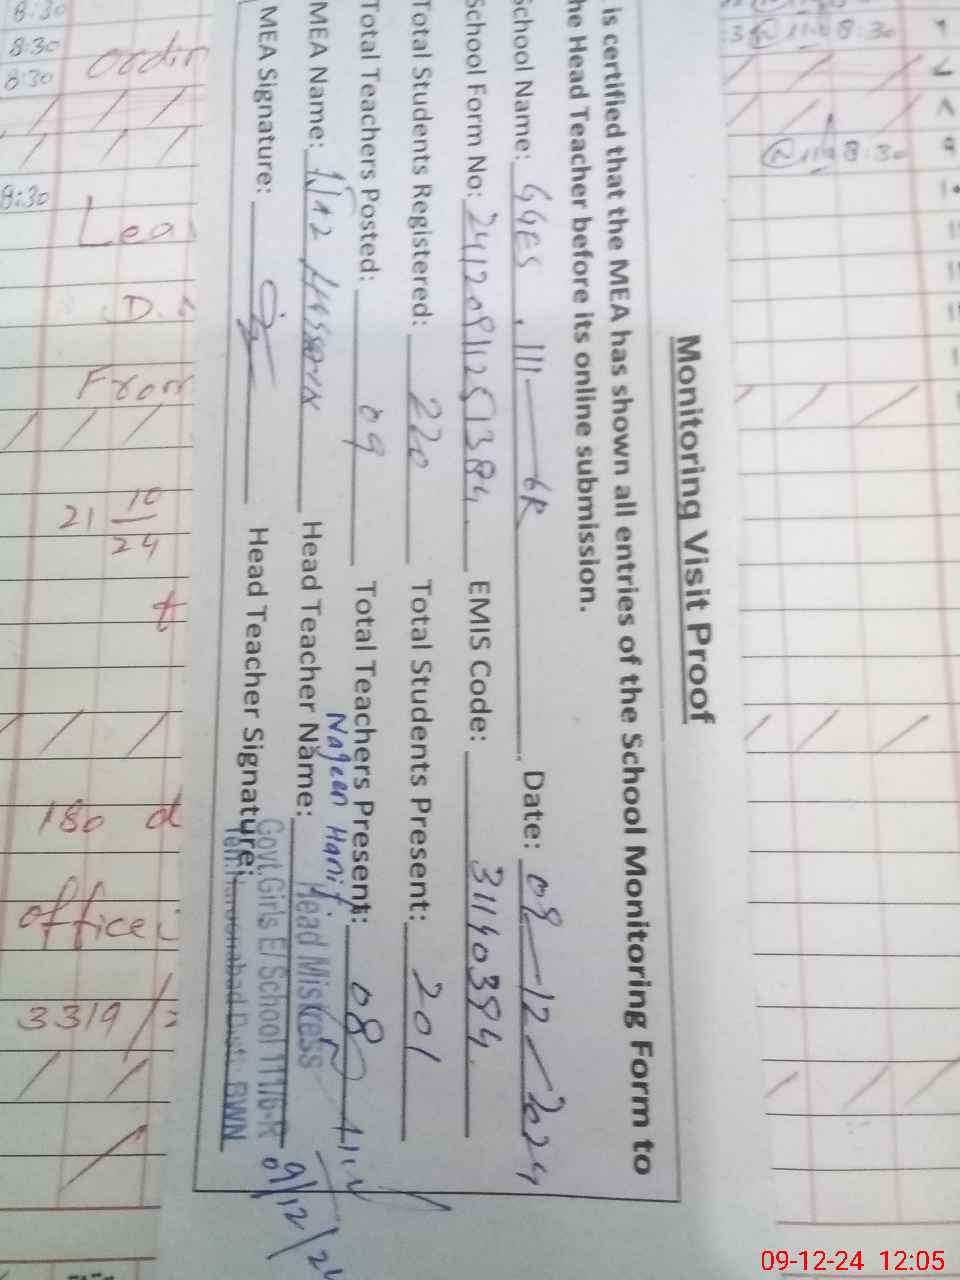 Monitoring Visit Proof
is certified that the MEA has shown all entries of the School Monitoring Form to
he Head Teacher before its online submission.
School Name: GGES, 111-6R Date: 09-12-2024
School Form No: EMIS Code: 31140394
Total Students Registered: 220 Total Students Present: 201
Total Teachers Posted: 09 Total Teachers Present: 08
MEA Name: Head Teacher Name: Nageen Hanif
MEA Signature: Head Teacher Signature:
Head Mistress
Govt. Girls E/ School 111/6-R
Teh. Haroonabad Distt. BWN
09/12/24
8:30
8:30
8:30
8:30
Lea
D.
From
21 10/24
t
180 d
office
3319
8:30
8:30
09-12-24 12:05